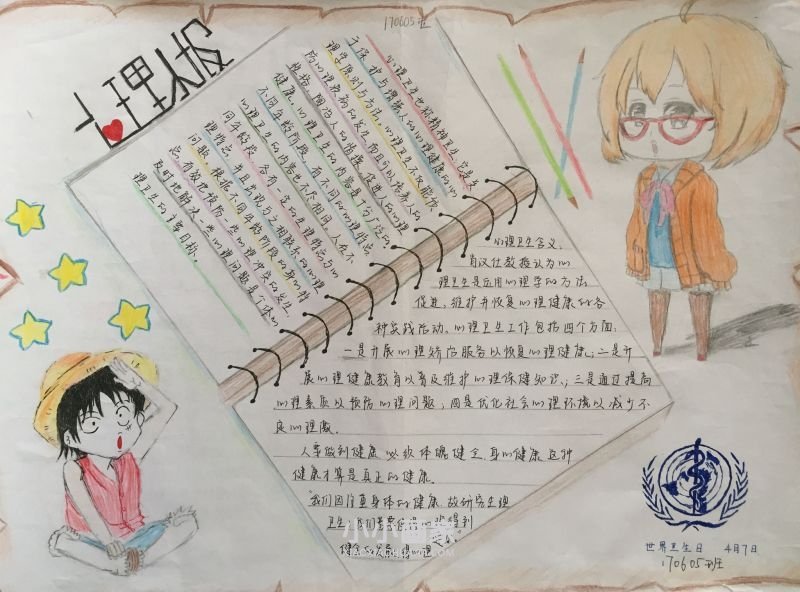 170605班
心理小报
心理卫生也称精神卫生,它是关
于保护与增强人的心理健康的心
理学原则与方法。心理卫生不仅能预
防心理疾病的发生,而且可以培养人的
性格,陶冶人的情操,促进人的心理
健康。心理卫生的内容是十分广泛的,
不同年龄阶段,有不同的心理特点,
心理卫生的内容也不尽相同。人在不
同年龄段,各有一定的生理特点与心
理特点,并且出现与之相联系的心理
问题。根据不同年龄阶段的身心特
点,有效地预防一些心理冲突的发生,
及时地解决一些心理问题是个体心
理卫生的主要目标。
心理卫生含义:
肖汉仕教授认为心
理卫生是应用心理学的方法
促进、维护并恢复心理健康的各
种实践活动,心理卫生工作包括四个方面:
一是开展心理矫治服务以恢复心理健康;二是开
展心理健康教育以普及维护心理保健知识;三是通过提高
心理素质以预防心理问题,四是优化社会心理环境以减少不
良心理源。
人要做到健康必须体魄健全,身心健康这种
健康才算是真正的健康。
我们因注重身体的健康,故研究生理
卫生,我们
小小画家
XIAOXIAOHUAJIA.COM
世界卫生日 4月7日
170605班